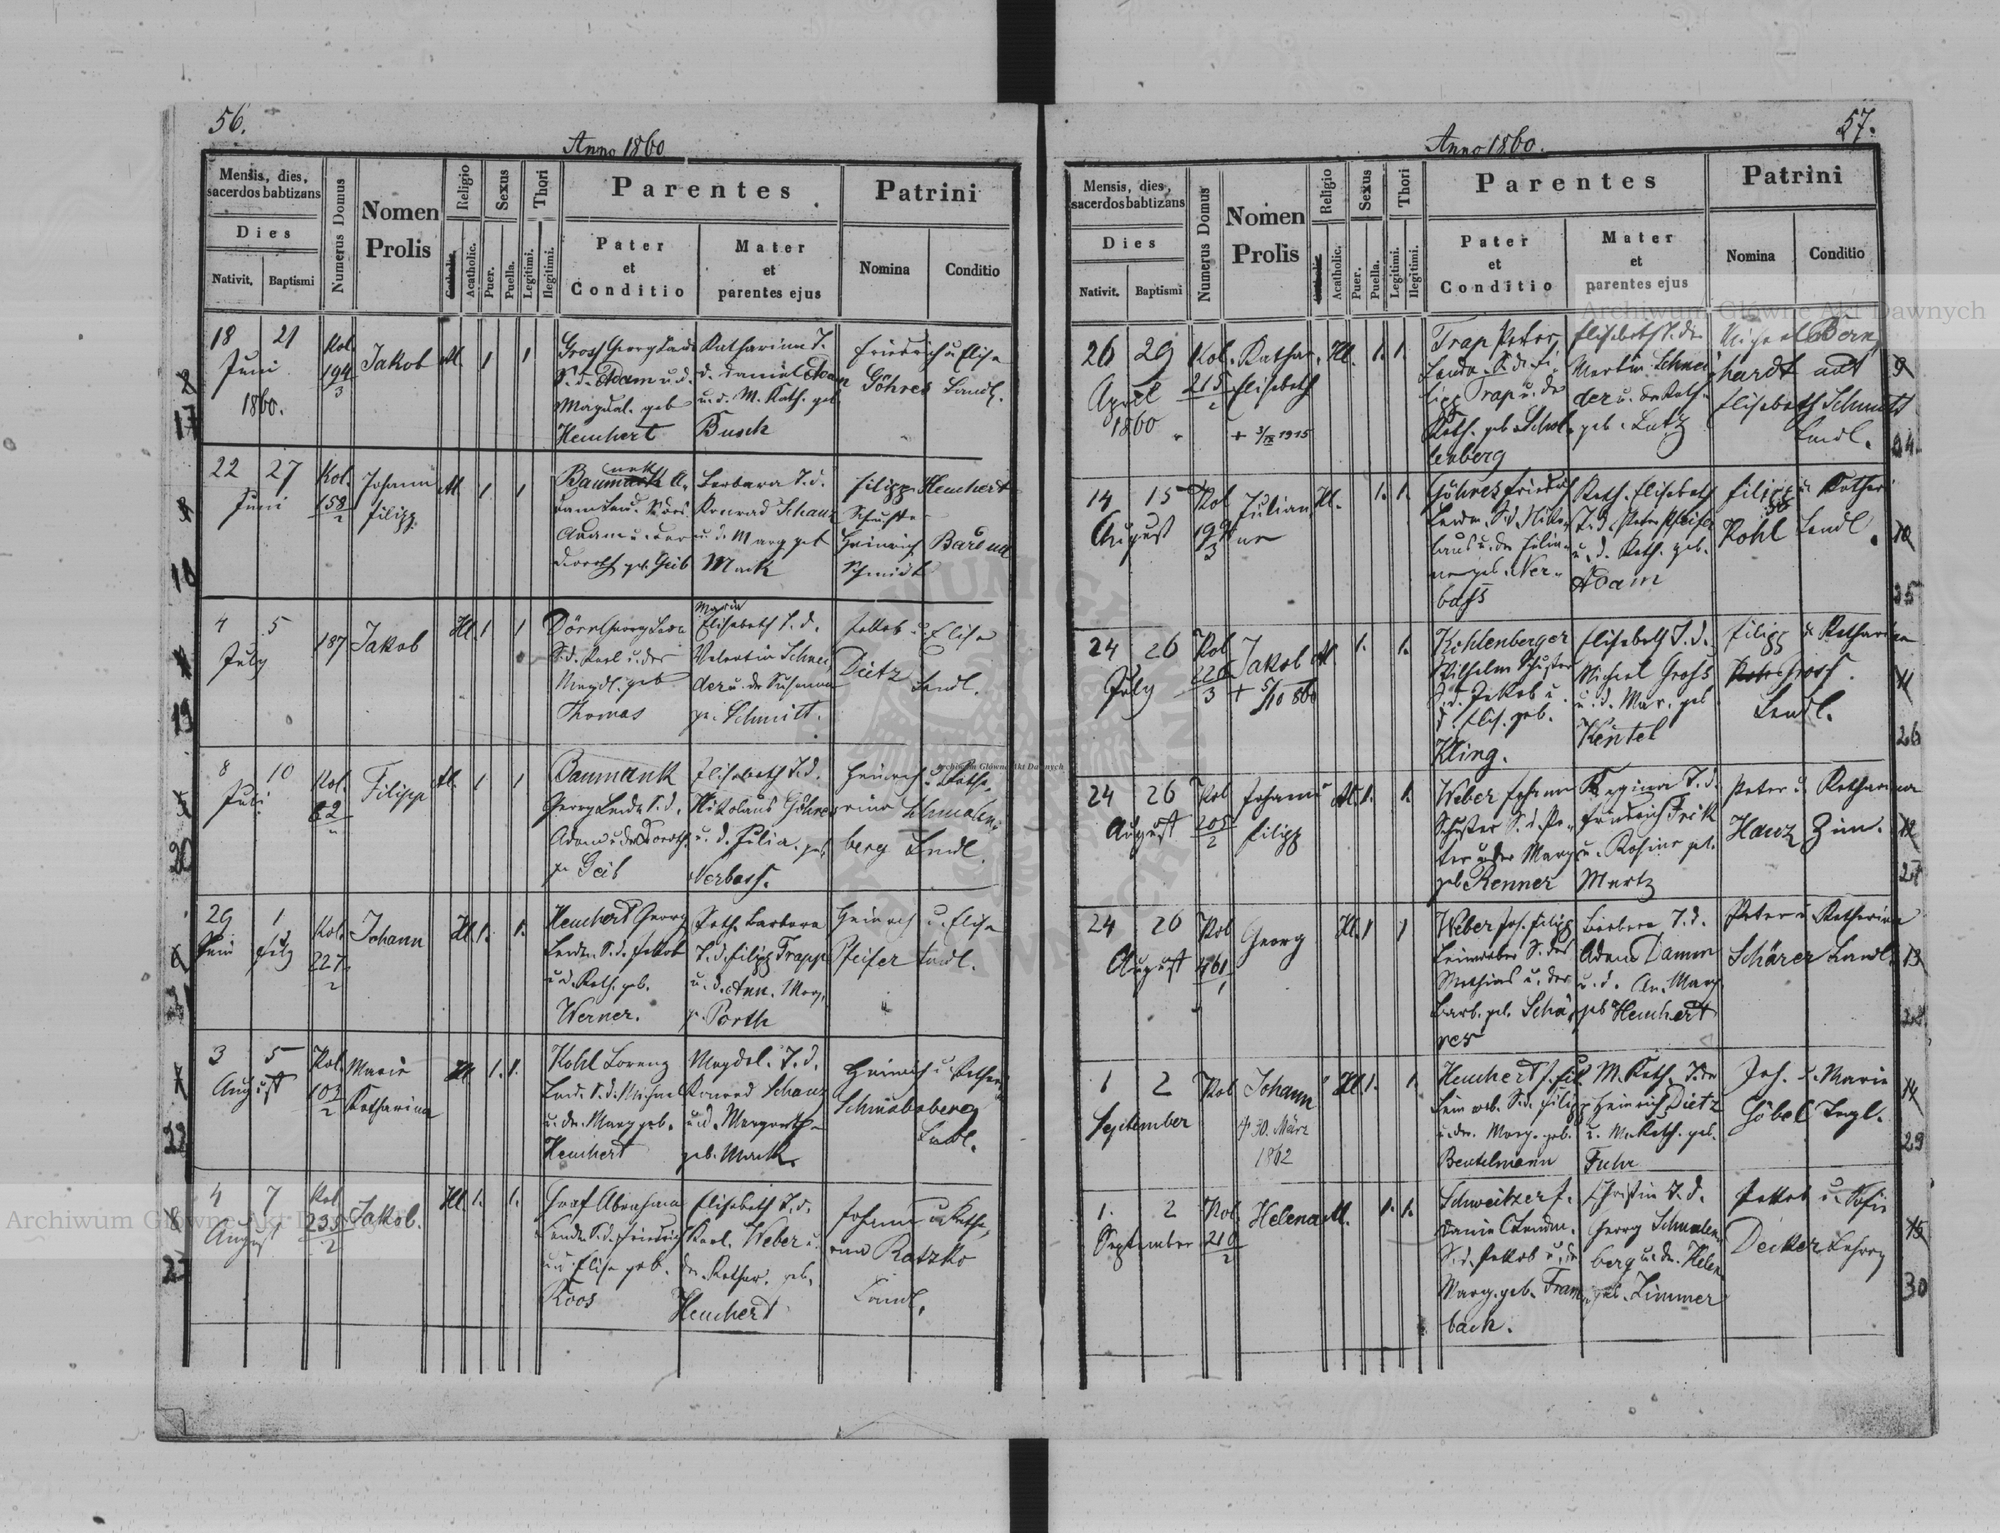 56.
Anno 1860
Mensis, dies,
sacerdos babtizans
Dies
Nativit.
Baptismi
Numerus Domus
Nomen
Prolis
Religio
Catholic.
Acatholic.
Sexus
Puer.
Puella.
Thori
Legitimi.
Ilegitimi.
Parentes
Pater
et
Conditio
Mater
et
parentes ejus
Patrini
Nomina
Conditio
18 21
Juni
1860.
Kol.
194
3
Jakob
1 1
Gross Georg
S. d. Adam u. d.
Magdal. geb
Heuchert
Katharina T.
d. Daniel Adam
u. d. M. Kath. geb
Busch
Friedrich u Elisa
Göhres Landl.
17
22 27
Juni
Kol.
158
2
Johann
Filipp.
1 1
Baumank A.
Adam u. der
Doroth. ge. Geib
Barbara T. d.
Konrad Schanz
u. d. Marg geb
Mack
Filipp Heuchert
Schuster
Heinrich
Schmidt
18
4 5
July
187
Jakob
1 1
Dörr Georg
S. d. Karl u. der
Magdl. geb
Thomas
Maria
Elisabeth T. d.
Valentin Schnei
der u. der Susanna
ge. Schmitt.
Jakob u Elisa
Dietz Landl.
19
8 10
Juli
Kol.
62
Filipp
1 1
Baumank
Georg Landm S. d.
Adam u der Doroth.
ge Geib
Elisabeth T. d.
Nikolaus Göhres
u. d. Julia. geb
Verbass.
Heinrich u. Katha
rina Schmalen
berg Landl.
20
29 1
Juni July
Kol.
227
2
Johann
1. 1.
Heuchert Georg
Landm S. d. Jakob
u d. Kath. geb.
Werner.
Kath. Barbara
T. d. Filipp Trapp
u. d. Ann. Marg.
g. Porth
Heinrich u. Elisa
Pfeifer Landl.
21
3 5
August
Kol.
103
2
Maria
Katharina
1. 1.
Kohl Lorenz
Landm S. d. Michael
u. der Marg geb.
Heuchert
Magdal. T. d.
Konrad Schanz
u d. Margareth
geb. Mack.
Heinrich u. Kathar.
Landl.
22
4 7
August
Kol.
235
2
Jakob.
1. 1.
Abraham
Landm S. d. Friedrich
u. d. Elisa geb.
Koos
Elisabeth T. d.
Karl Weber u.
der Kathar. geb.
Heuchert
Johann u. Katha
rina Ratzko
Landl.
23
57.
Anno 1860.
Mensis, dies,
sacerdos babtizans
Dies
Nativit.
Baptismi
Numerus Domus
Nomen
Prolis
Religio
Catholic.
Acatholic.
Sexus
Puer.
Puella.
Thori
Legitimi.
Ilegitimi.
Parentes
Pater
et
Conditio
Mater
et
parentes ejus
Patrini
Nomina
Conditio
26 29
April
1860
Kol.
215
2
Kathar.
Elisabeth
+ 3/IX 1915
1. 1.
Trap Peter,
Landm. S. d. Fi
lipp Trap u. der
Kath. geb. Schol
lenberg
Elisabeth T. der
Martin Schnei
der u. der Kath.
geb. Lutz
Michael Bern
hardt und
Elisabeth Schmitt
Landl.
24.
14 15
August
Kol
199
3
Julian
na
1. 1.
Göhres Friedrich
Landm. S. d. Niko
laus u. der Julian
na geb. Ver
bass
Kath. Elisabeth
T. d. Peter Pfeifer
u. d. Kath. geb.
Adam
Filipp u Kathar
Kohl Landl.
25
24 26
July
Kol
226
3
Jakob
+ 5/10 860
1. 1.
Kohlenberger
Wilhelm Schuster
S. d. Jakob u.
d. Elis. geb.
Kling.
Elisabeth T. d.
Michael Gross
u. d. Mar. geb
Keutel
Filipp u Katharina
Gross.
Landl.
26
24 26
August
Kol
205
2
Johann
Filipp
1. 1.
Weber Johann
Schuster S. d. Pe
ter u der Marg
geb Renner
Regina T. d.
Friedrich Frik
u. Rosina geb.
Martz
Peter u. Katharina
Hanz Zim.
27
24 26
August
Kol
161
Georg
1 1
Weber Joh. Filipp
Leinweber S. des
Mathias u. der
Barb. geb. Schä
res
Barbara T. d.
Adam Damm
u. d. An. Marg
geb Heuchert
Peter u. Katharina
Schärer Landl.
28
1 2
September
Kol
Johann
+ 30. März
1862
1. 1.
Heuchert J. Fil
Leinweb. S. d. Filipp
u. der. Marg. geb.
Beutelmann
M. Kath. T. der
Heinrich Dietz
u. M. Kath. geb.
Fuhr
Joh. u. Maria
Göbel Tagl.
29
1. 2
September
Kol.
210
2
Helena
1. 1.
Schweitzer J.
Daniel Landm.
S. d. Jakob u. der
Marg. geb. Fram
bach.
Christin T. d.
Georg Schmalen
berg u. der Helen
geb. Zimmer
Jakob u. Sofie
Decker Lehrer
30
Archiwum Główne Akt Dawnych
Archiwum Główne Akt Dawnych
Archiwum Główne Akt Dawnych